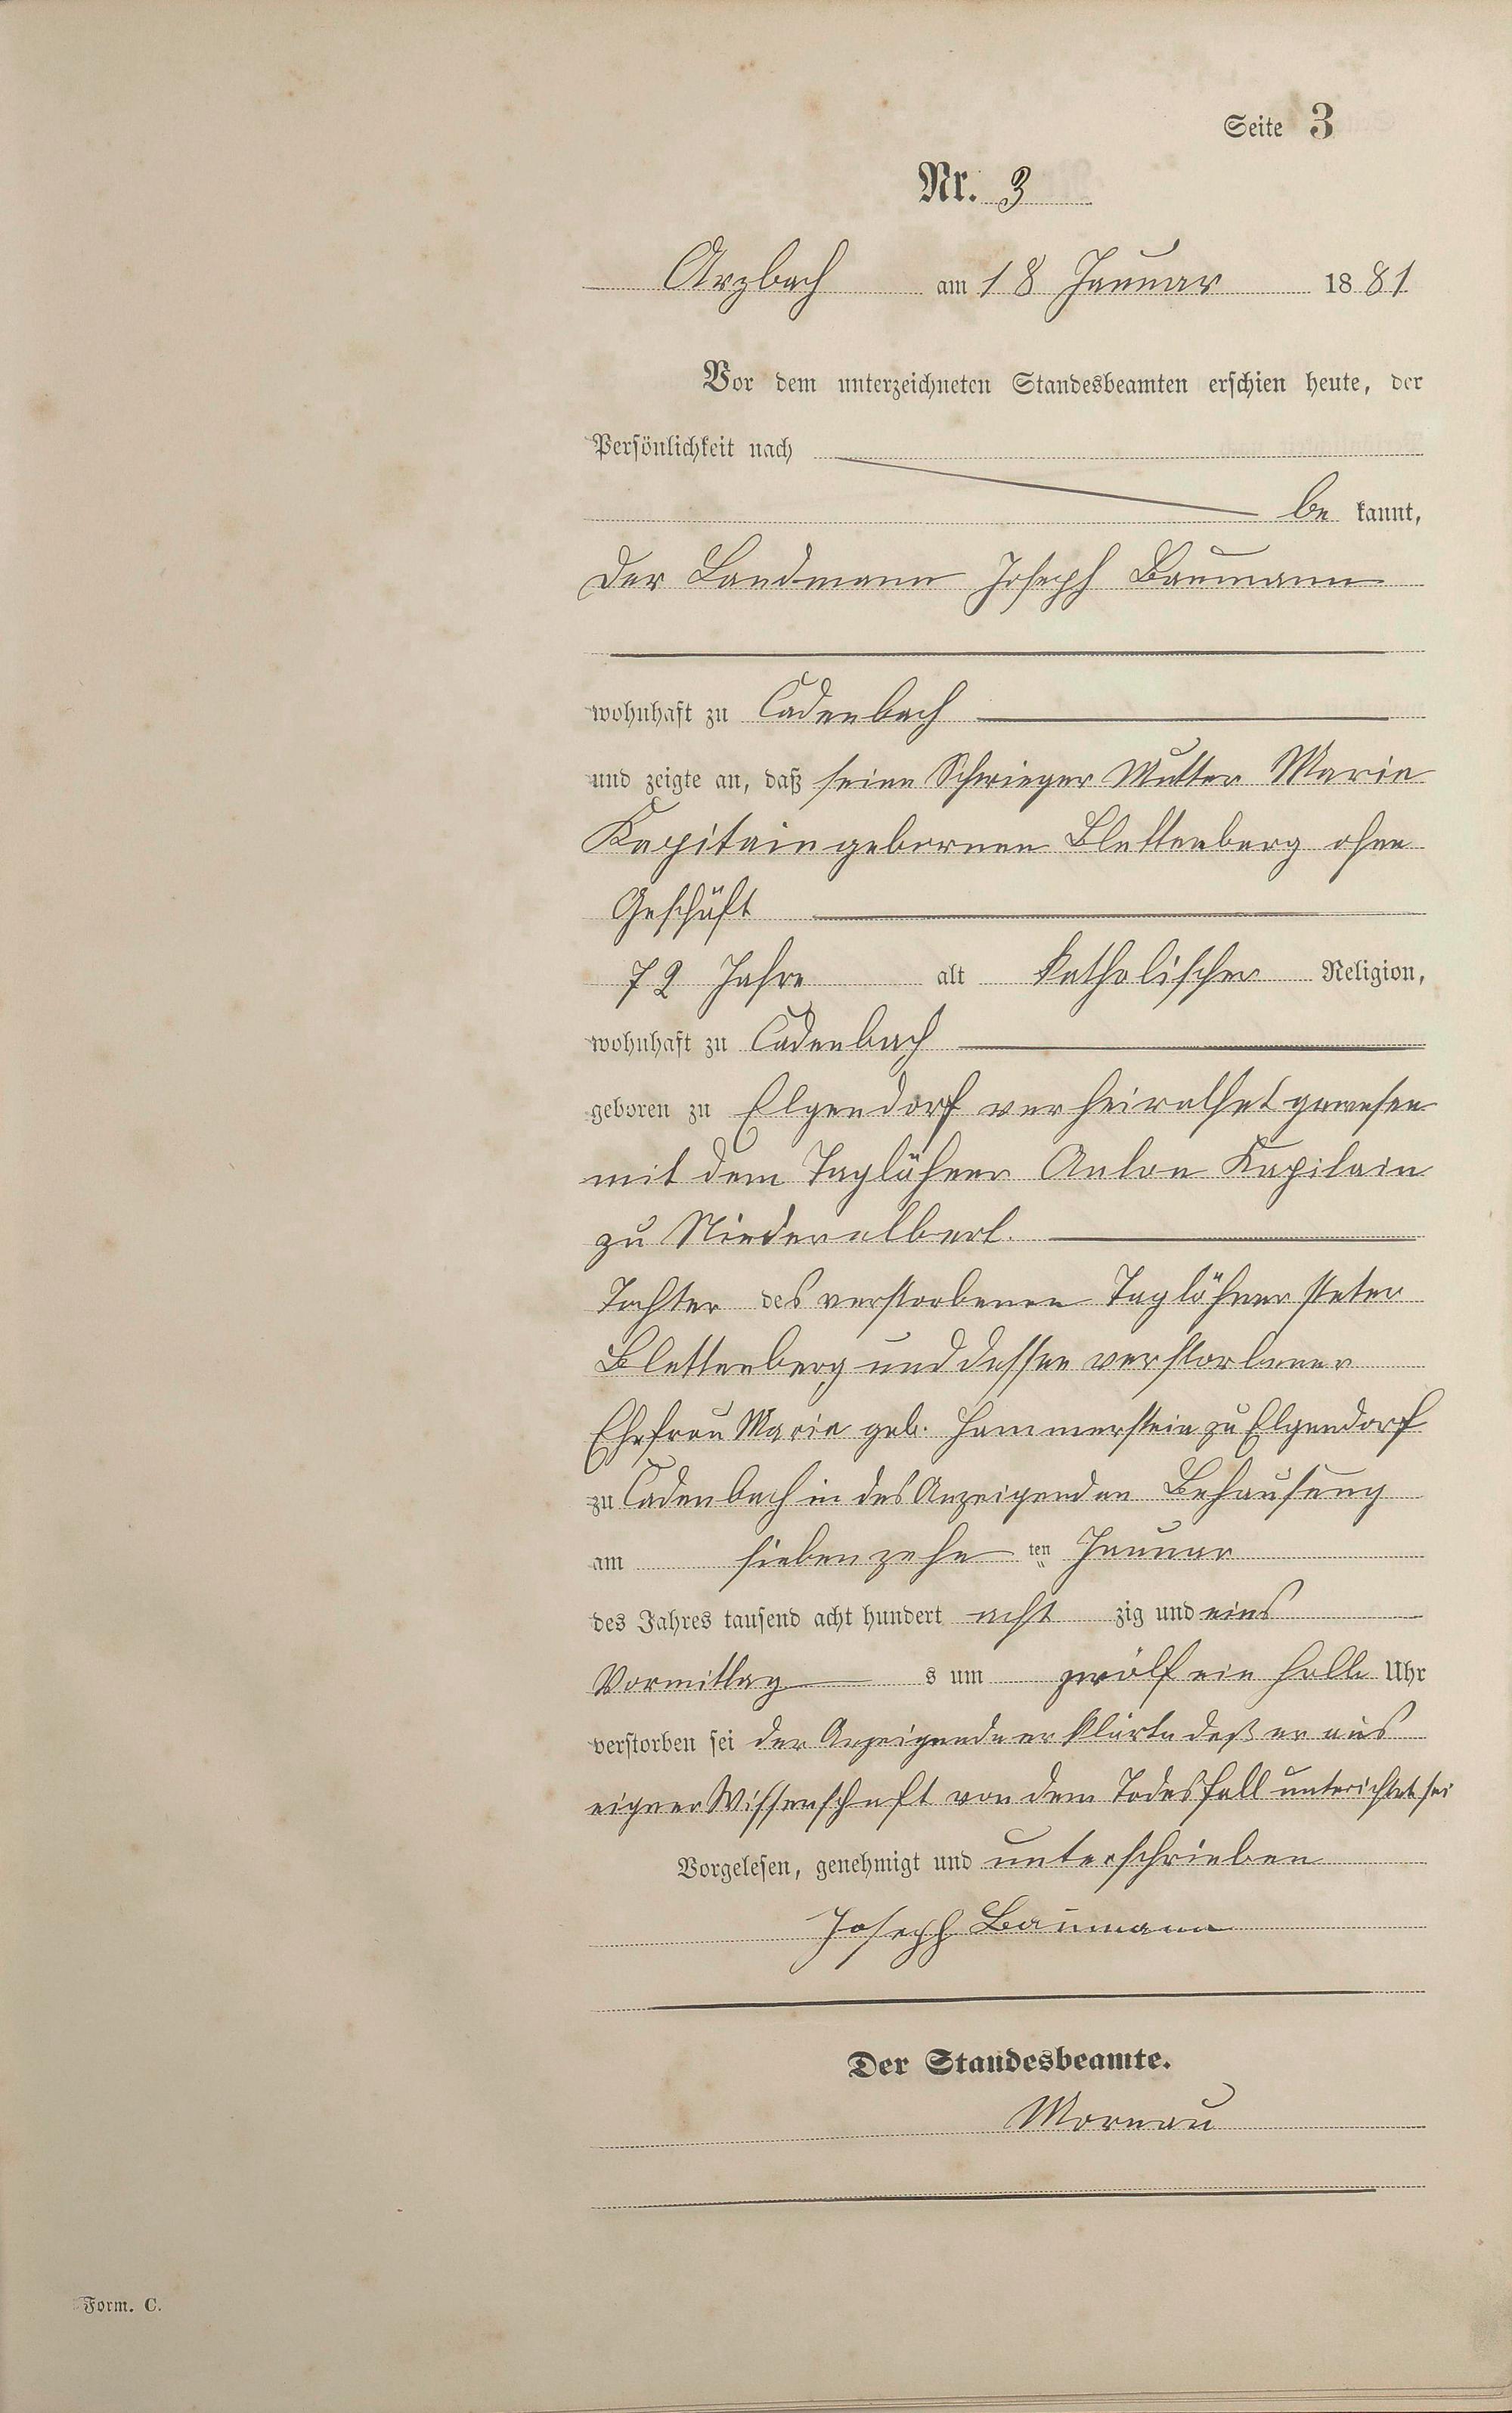 Seite 3
Nr. 3
Arzbach am 18 Januar 1881
Vor dem unterzeichneten Standesbeamten erschien heute, der
Persönlichkeit nach
be kannt,
der Landmann Joseph Baumann
wohnhaft zu Cadenbach
und zeigte an, daß seine Schwieger Mutter Marie
Kapitain gebornen Blettenberg ohne
Geschäft
72 Jahre alt katholischer Religion,
wohnhaft zu Cadenbach
geboren zu Elgendorf verheirathet gewesen
mit dem Taglöhner Anton Kapitain
zu Niederelbert.
Tochter des verstorbenen Taglöhner Peter
Blettenberg und dessen verstorbener
Ehefrau Marie geb. Hammerstein zu Elgendorf
zu Cadenbach in des Anzeigenden Behausung
am siebenzehn ten Januar
des Jahres tausend acht hundert acht zig und eins
Vormittag s um zwölf ein halb Uhr
verstorben sei der Anzeigende erklärte daß er aus
eigner Wissenschaft von dem Todesfall unterichtet sei
Vorgelesen, genehmigt und unterschrieben
Joseph Baumann
Der Standesbeamte.
Mornau
Form. C.